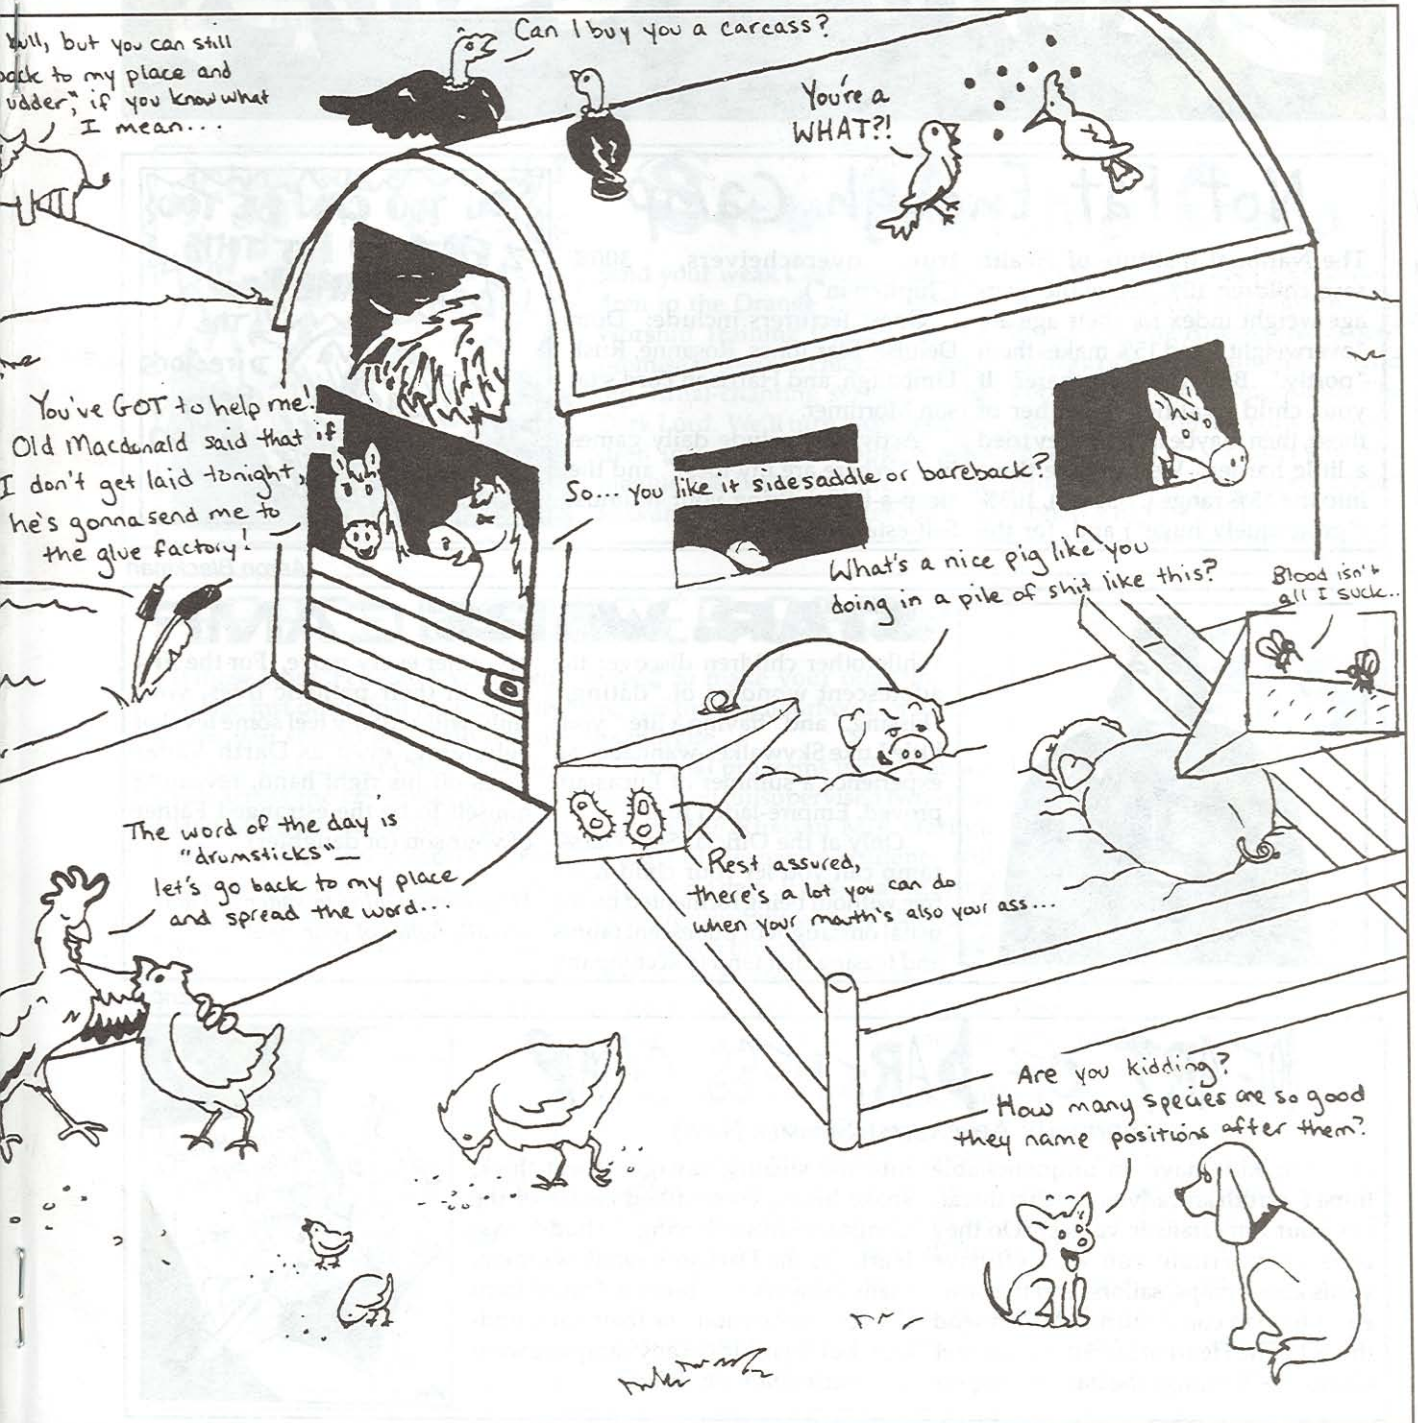 bull, but you can still
back to my place and
udder," if you know what
I mean...
Can I buy you a carcass?
You're a
WHAT?!
You've GOT to help me!
Old Macdonald said that if
I don't get laid tonight,
he's gonna send me to
the glue factory!
So... you like it sidesaddle or bareback?
What's a nice pig like you
doing in a pile of shit like this?
Blood isn't
all I suck..
The word of the day is
"drumsticks"—
let's go back to my place
and spread the word...
Rest assured,
there's a lot you can do
when your mouth's also your ass...
Are you kidding?
How many species are so good
they name positions after them?